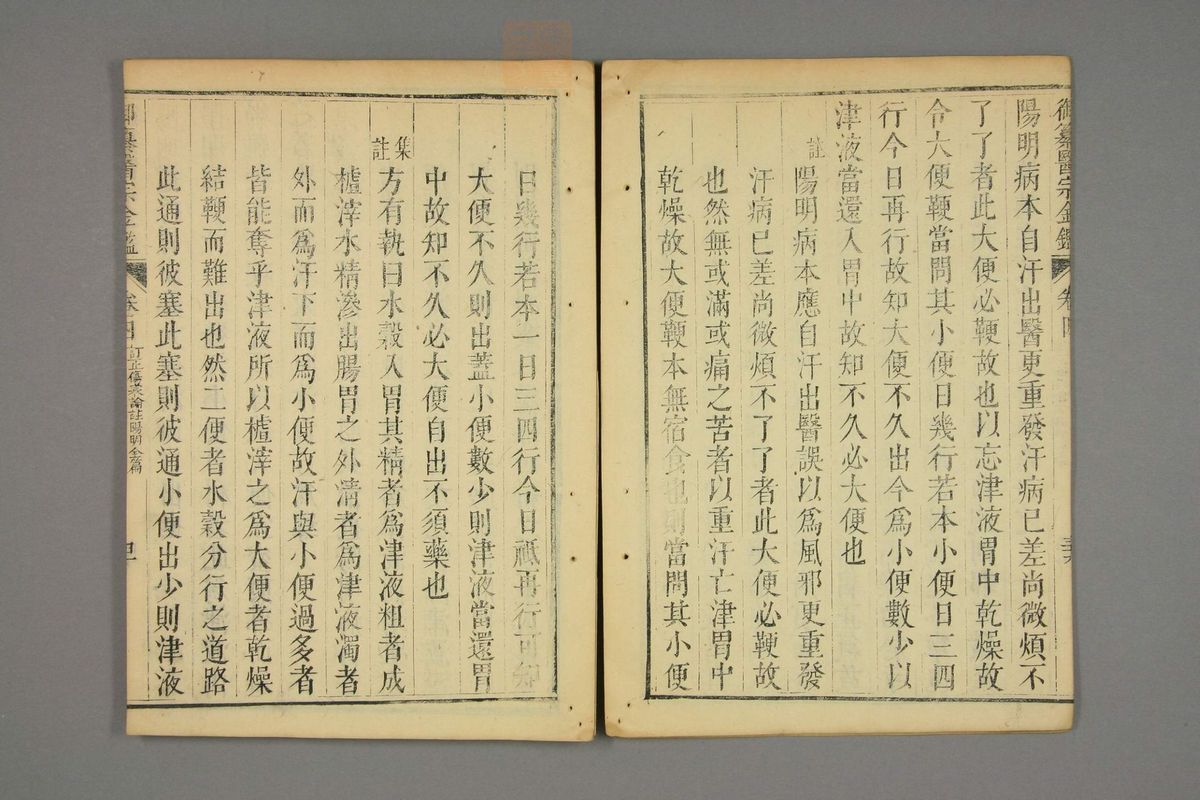 御纂醫宗金鑑 卷四
陽明病本自汗出醫更重發汗病已差尚微煩不
了了者此大便必鞕故也以忘津液胃中乾燥故
令大便鞕當問其小便日幾行若本小便日三四
行今日再行故知大便不久出今爲小便數少以
津液當還入胃中故知不久必大便也
註陽明病本應自汗出醫誤以爲風邪更重發
汗病已差尚微煩不了了者此大便必鞕故
也然無或滿或痛之苦者以重汗亡津胃中
乾燥故大便鞕本無宿食也則當問其小便
日幾行若本一日三四行今日祗再行可知
大便不久則出蓋小便數少則津液當還胃
中故知不久必大便自出不須藥也
集註
方有執曰水穀入胃其精者爲津液粗者成
樝滓水精滲出腸胃之外清者爲津液濁者
外而爲汗下而爲小便故汗與小便過多者
皆能奪乎津液所以樝滓之爲大便者乾燥
結鞕而難出也然二便者水穀分行之道路
此通則彼塞此塞則彼通小便出少則津液
御纂醫宗金鑑 卷四 訂正傷寒論註陽明全篇